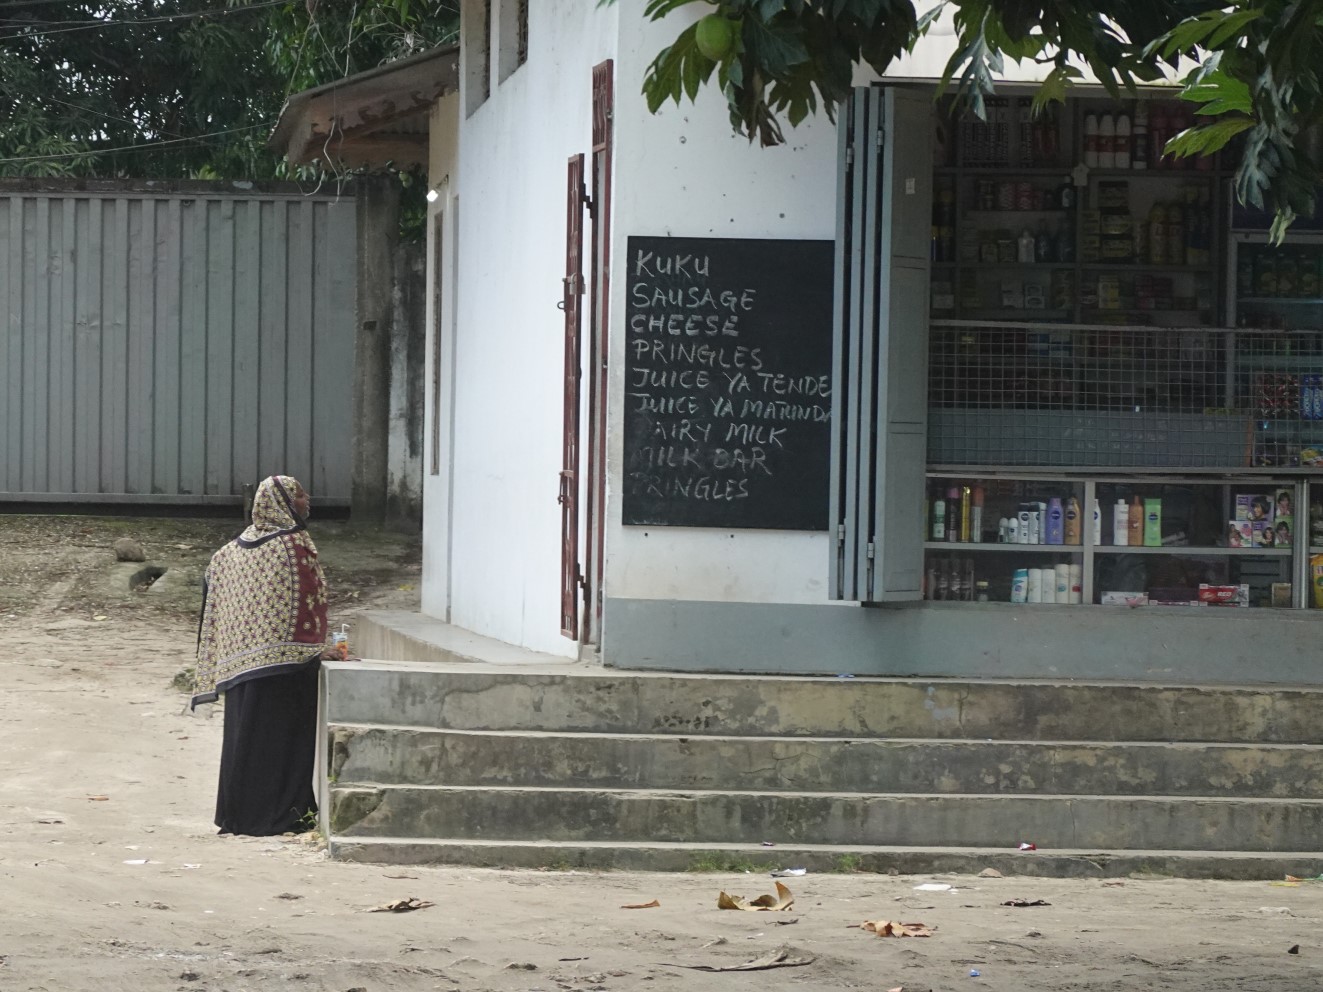 KUKU
SAUSAGE
CHEESE
PRINGLES
JUICE YA TENDE
JUICE YA MATUNDA
DAIRY MILK
MILK BAR
PRINGLES